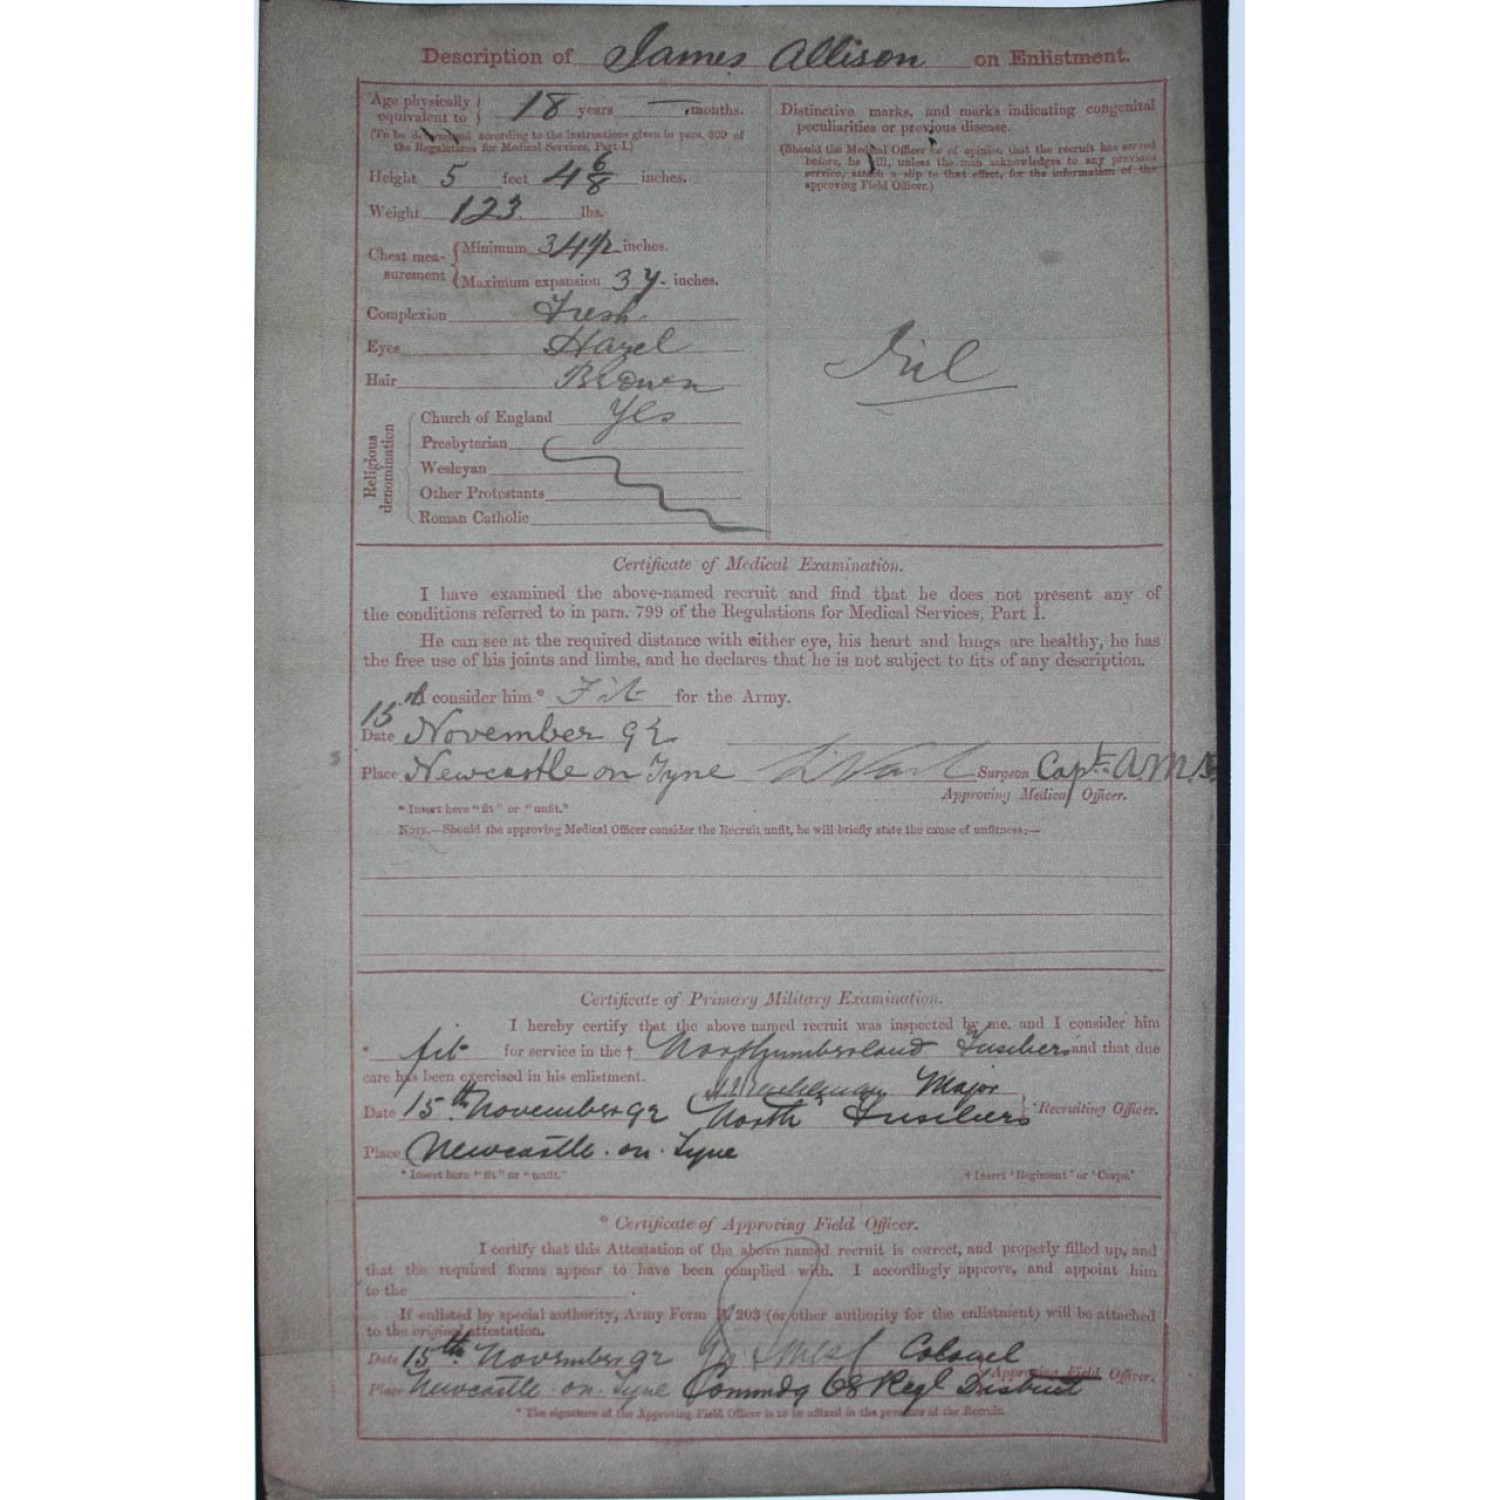 Description of James Allison on Enlistment.
Age physically equivalent to 18 years — months.
(To be determined according to the instructions given in para. 809 of
the Regulations for Medical Services, Part I.)
Height 5 feet 4 6/8 inches.
Weight 123 lbs.
Chest measurement
Minimum 34 1/2 inches.
Maximum expansion 37 inches.
Complexion Fresh
Eyes Hazel
Hair Brown
Religious denomination
Church of England Yes
Presbyterian
Wesleyan
Other Protestants
Roman Catholic
Distinctive marks, and marks indicating congenital
peculiarities or previous disease.
(Should the Medical Officer be of opinion that the recruit has served
before, he will, unless the man acknowledges to any previous
service, attach a slip to that effect, for the information of the
approving Field Officer.)
Nil
Certificate of Medical Examination.
I have examined the above-named recruit and find that he does not present any of
the conditions referred to in para. 799 of the Regulations for Medical Services, Part I.
He can see at the required distance with either eye, his heart and lungs are healthy, he has
the free use of his joints and limbs, and he declares that he is not subject to fits of any description.
I consider him * Fit for the Army.
Date 15th November 92
Place Newcastle on Tyne Surgeon Capt: A.M.S.
Approving Medical Officer.
* Insert here "fit" or "unfit."
NOTE.—Should the approving Medical Officer consider the Recruit unfit, he will briefly state the cause of unfitness:—
Certificate of Primary Military Examination.
I hereby certify that the above named recruit was inspected by me, and I consider him
* fit for service in the † Northumberland Fusiliers and that due
care has been exercised in his enlistment.
Major
Date 15th November 92 North Fusiliers Recruiting Officer.
Place Newcastle on Tyne
* Insert here "fit" or "unfit." † Insert 'Regiment' or 'Corps.'
* Certificate of Approving Field Officer.
I certify that this Attestation of the above named recruit is correct, and properly filled up, and
that the required forms appear to have been complied with. I accordingly approve, and appoint him
to the
If enlisted by special authority, Army Form B. 203 (or other authority for the enlistment) will be attached
to the original attestation.
Date 15th November 92 Colonel
Approving Field Officer.
Place Newcastle on Tyne Commdg 68 Regl District
* The signature of the Approving Field Officer is to be affixed in the presence of the Recruit.